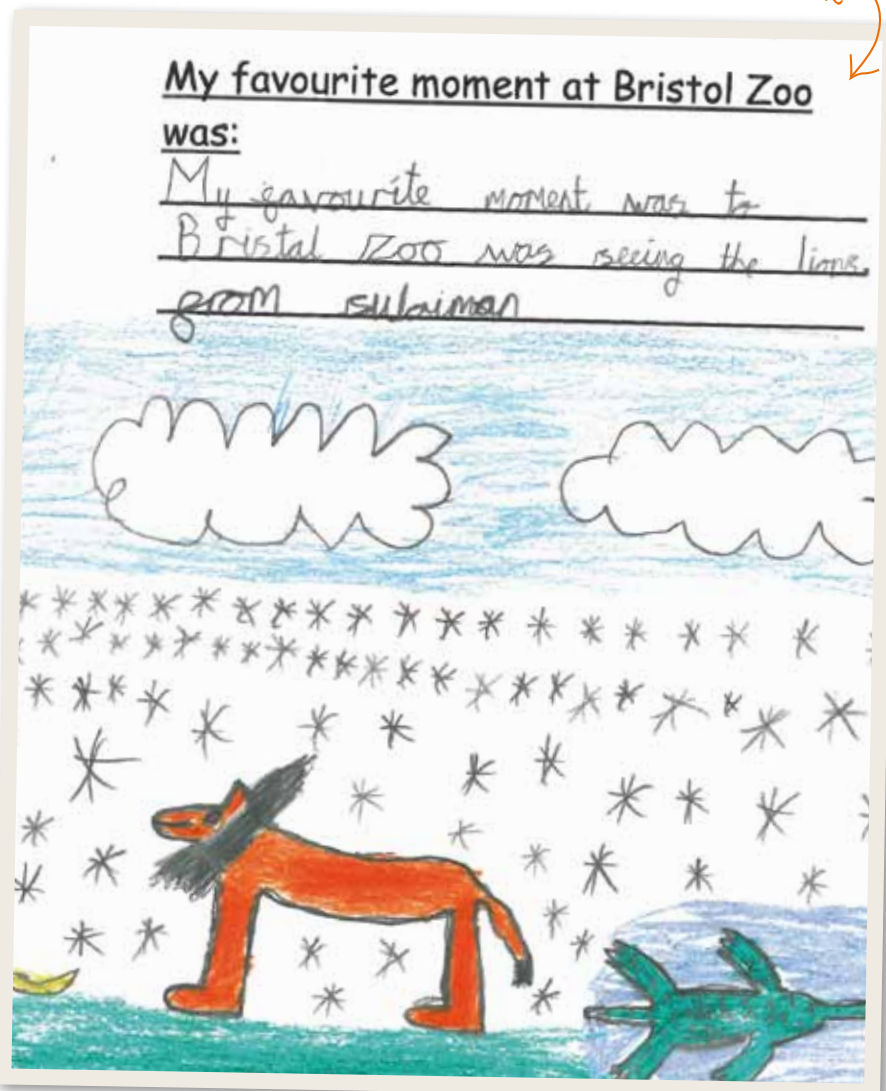 My favourite moment at Bristol Zoo
was:
My favourite moment was to
Bristal Zoo was seeing the lions.
from sulaiman